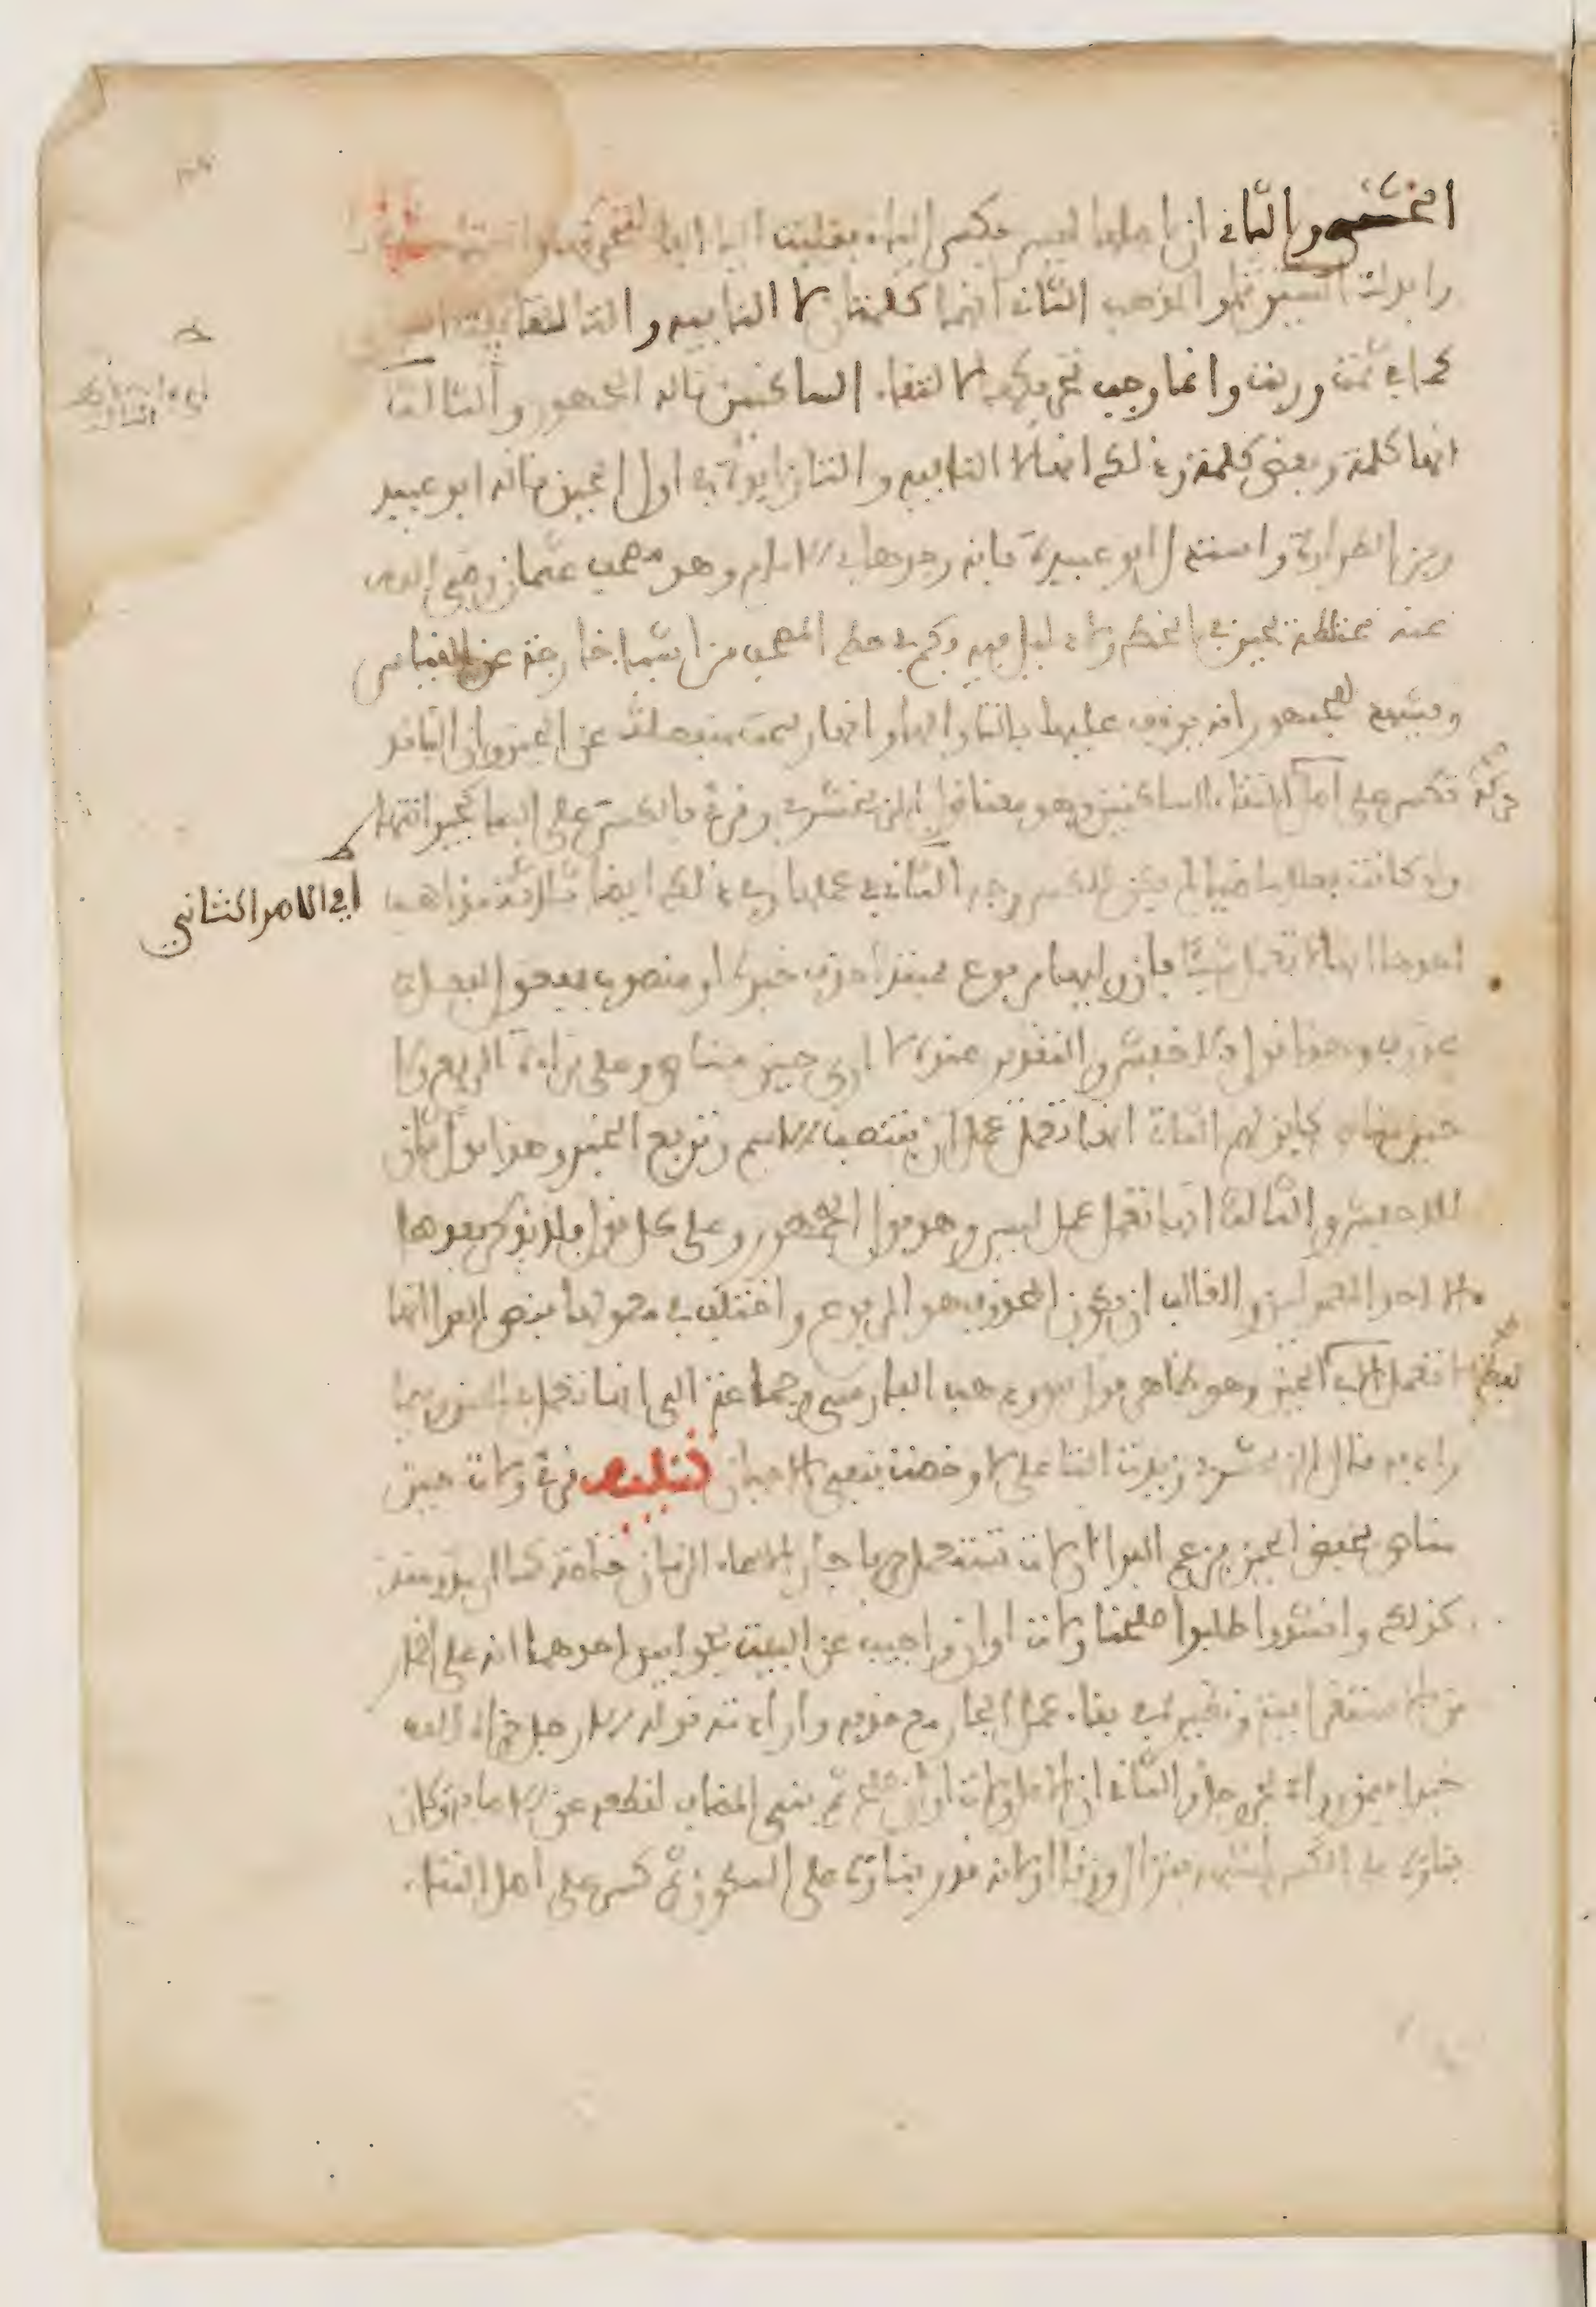 الخشني والثاني ان اصلها ليس بكسر الياء فقلبت الياء الفا لتحركها
وابدلت السين تاء والمذهب الثاني انها كلمتان لا النافية والتا لتانيث اللفظة
كما في ثمت وربت وانما وجب تحريكها لالتقاء الساكنين قاله الجمهور والثالث
انها كلمة وبعض كلمة وذلك انها لا النافية والتا زايدة في اول الحين قاله ابو عبيد
وبن الطراوة واستدل ابو عبيدة بانه وجدها في الامام وهو مصحف عثمان رضي الله
عنه مختلطة بحين في الخط ولا دليل فيه وكم في خط المصحف من اشياء خارجة عن القياس
ويشهد للجمهور انه يوقف عليها بالتا والها وانها رسمت منفصلة عن الحين وان التا قد
تكسر على اصل حركة التقاء الساكنين وهو معنا قول الزمخشري وقرئ بالكسر على البنا كجير انتها
ولو كانت فعلا ماضيا لم يكن للكسر وجه الثاني في عملها وفي ذلك ايضا ثلاثة مذاهب
اي الامر الثاني
احدها انها لا تعمل شيئا فان وليها مرفوع فمبتدا حذف خبره او منصوب فمفعول لفعل
محذوف وهذا قول للاخفش والتقدير عنده لا ارى حين مناص وعلى قراءة الرفع ولا
حين مناص كاين لهم الثاني انها تعمل عمل ان فتنصب الاسم وترفع الخبر وهذا قول ثان
للاخفش والثالث انها تعمل عمل ليس وهو قول الجمهور وعلى كل قول فلا يذكر بعدها
الا احد المعمولين والغالب ان يكون المحذوف هو المرفوع واختلف في معمولها فنص الفرا انها
لا تعمل الا في لفظة الحين وهو ظاهر قول سيبويه وذهب الفارسي وجماعة الى انها تعمل في الحين وفيما
رادفه قال الزمخشري زيدت التا على لا وخصت بنفي الاحيان تنبيه قرئ ولات حين
مناص بخفض الحين فزعم الفرا ان لات تستعمل حرفا جارا لاسماء الزمان خاصة كما ان مذ ومنذ
كذلك وانشدوا طلبوا صلحنا ولات اوان واجيب عن البيت بجوابين احدهما انه على اضمار
من الاستغراقية ونظيره في بقاء عمل الجار مع حذفه وارادته قوله الا رجل جزاه الله
خيرا فيمن رواه بجر رجل والثاني ان الاصل ولات اوان صلح ثم بني المضاف لقطعه عن الاضافة وكان
بناؤه على الكسر لشبهه بنزال وزنا او لانه قدر بناؤه على السكون ثم كسر على اصل التقاء